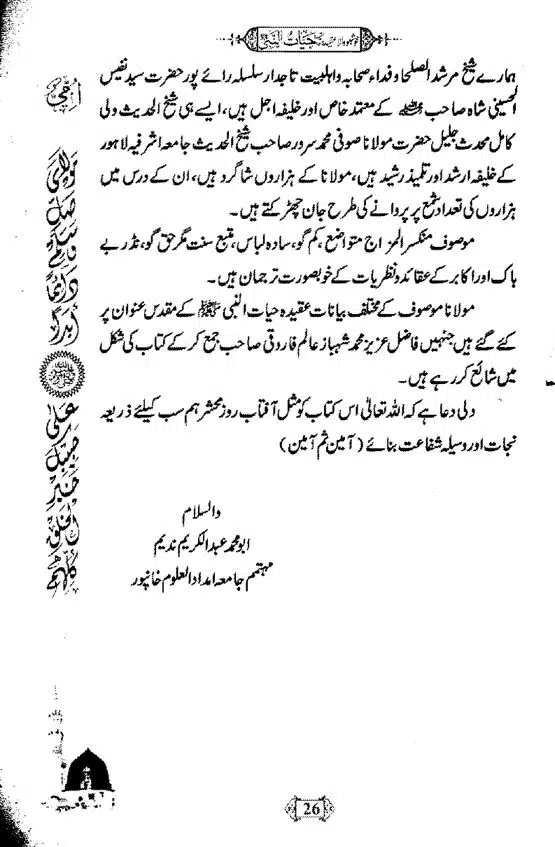 حیات النبی ﷺ
ہمارے شیخ مرشد الصلحا و فداء صحابہ و اہلبیت تاجدار سلسلہ رائے پور حضرت سید نفیس
الحسینی شاہ صاحب کے معتمد خاص اور خلیفہ اجل ہیں، ایسے ہی شیخ الحدیث ولی
کامل محدث جلیل حضرت مولانا صوفی محمد سرور صاحب شیخ الحدیث جامعہ اشرفیہ لاہور
کے خلیفہ ارشد اور تلمیذ رشید ہیں، مولانا کے ہزاروں شاگرد ہیں، ان کے درس میں
ہزاروں کی تعداد شمع پر پروانے کی طرح جان چھڑکتے ہیں۔
موصوف منکسر المزاج متواضع، کم گو، سادہ لباس، متبع سنت مگر حق گو، نڈر بے
باک اور اکابر کے عقائد و نظریات کے خوبصورت ترجمان ہیں۔
مولانا موصوف کے مختلف بیانات عقیدہ حیات النبی ﷺ کے مقدس عنوان پر
کئے گئے ہیں جنہیں فاضل عزیز محمد شہباز عالم فاروقی صاحب جمع کر کے کتاب کی شکل
میں شائع کر رہے ہیں۔
دلی دعا ہے کہ اللہ تعالی اس کتاب کو مثل آفتاب روز محشر ہم سب کیلئے ذریعہ
نجات اور وسیلہ شفاعت بنائے (آمین ثم آمین)
والسلام
ابو محمد عبدالکریم ندیم
مہتمم جامعہ امداد العلوم خانپور
مولای
صل
وسلم
دائما
أبدا
على
حبيبك
خير
الخلق
كلهم
26